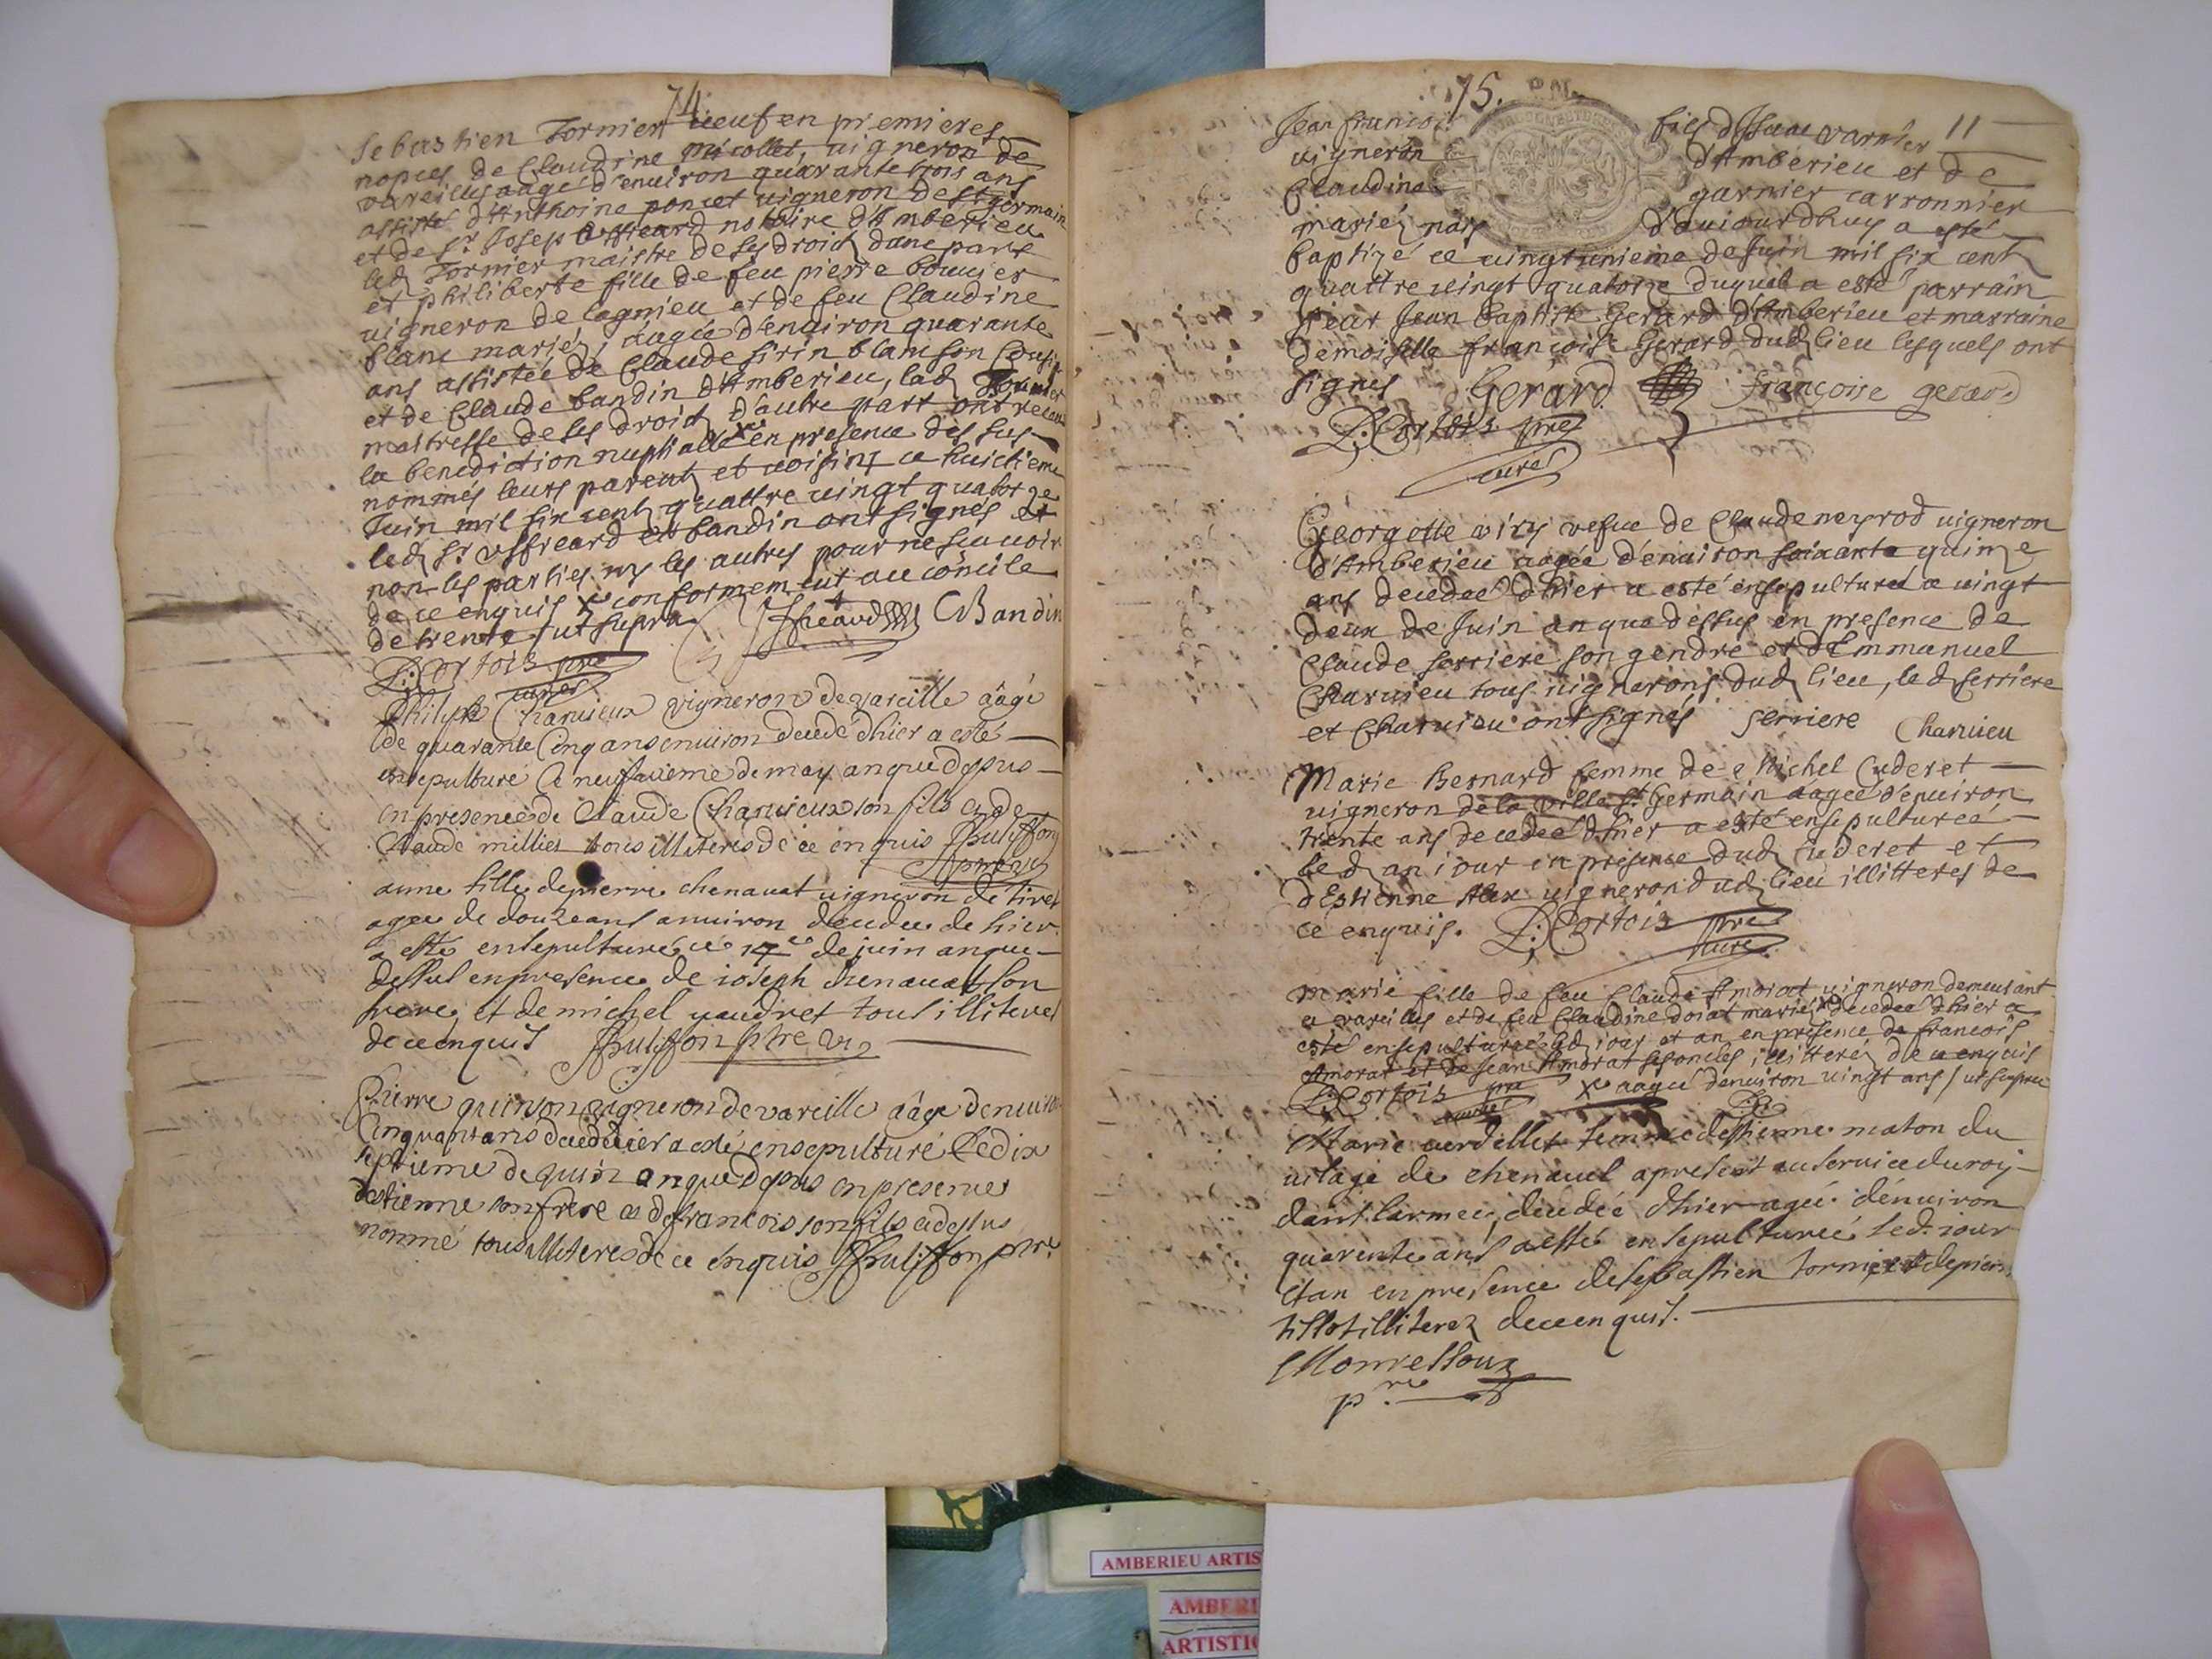 74
Sebastien Tornier ueuf en premieres
nopces de Claudine micollet, uigneron de
vareilles aagé d'enuiron quarante trois ans
assisté d'Anthoine poncet uigneron de St germain
et de Sr Josep Offreard notaire d'Amberieu
led Tornier maistre de ses droicts d'une part
et philiberte fille de feu pierre bouuier
uigneron de lagnieu et de feu Claudine
blanc mariés, aagée d'enuiron quarante
ans assistée de Claude blanc son Cousin
et de Claude bandin d'Amberieu, lad
maitresse de ses droicts d'autre part ont receu
la benediction nuptialle en presence des sus
nommés leurs parents et uoisins ce huictieme
Juin mil six cents quattre uingt quatorze
led Sr offreard et bandin ont signés et
non les parties ny les autres pour ne scauoir
de ce enquis conformement au concile
de trente ut supra Offreard CBandin
D: Cortois pre
curé
Philipe Charuieux vigneron de vareille aâgé
de quarante Cinq ans enuiron decedé dhier a esté
ensepulturé Ce neufuieme de may an que dessus
en presence de Claude Charuieux son fils et de
Claude millier tous illiteres de ce enquis
anne fille de pierre chenauat uigneron de tiret
agee de douze ans anuiron decedee de hier
a esté ensepulturé ce 14e de juin an que
dessus en presence de ioseph chenauat son
frere et de michel tous illiteres
de ce enquis
Pierre quinson vigneron de vareille aâgé denuiron
Cinquant ans decedé hier a esté ensepulturé Le dix
septieme de juin an que dessus en presence
destienne son frere et de francois son fils cy dessus
nommé tous illiteres de ce enquis
75.
11
Jean francois fils d'Isaac varnier
uigneron d'Amberieu et de
Claudine garnier carronnier
mariés nay d'auiourdhuy a esté
baptizé ce uingt unieme de Juin mil six cents
quattre uingt quatorze duquel a esté parrain
sieur Jean baptiste Gerard d'Amberieu et marraine
demoiselle francoise Gerard dud lieu lesquels ont
signés Gerard françoise gerard
D: Cortois pre
curé
Georgette viry vefue de Claude neyrod uigneron
d'Amberieu aagée d'enuiron soixante quinze
ans decedée d'hier a esté ensepulturée ce uingt
deux de Juin an que dessus en presence de
Claude serriere son gendre et d'Emmanuel
Charuieu tous uignerons dud lieu, led serriere
et Charuieu ont signés serriere Charuieu
Marie Bernard femme de Michel Cuderet
uigneron de la ville St Germain aagée d'enuiron
trente ans decedée d'hier a esté ensepulturée
led an iour en presence dud Cuderet et
d'Estienne Alex uigneron dud lieu illitteres de
ce enquis. D: Cortois pre
curé
Marie fille de feu Claude Amorat uigneron demeurant
a vareilles et de feu Claudine doiat mariés decedée d'hier a
esté ensepulturée led iour et an en presence de francois
Amorat et de Jean Amorat ses oncles illitterés de ce enquis
D: Cortois pre aagée denuiron uingt ans / ut supra
curé
Marie femme destienne maton du
uilage de chenauel apresent au seruice du roy
dans larmee, decedée d'hier agée denuiron
quarente ans a esté ensepulturée led. iour
et an en presence de sebastien tornier et de pierre
tissot illiterez de ce enquis.
pre
AMBERIEU ARTIS
ARTISTI